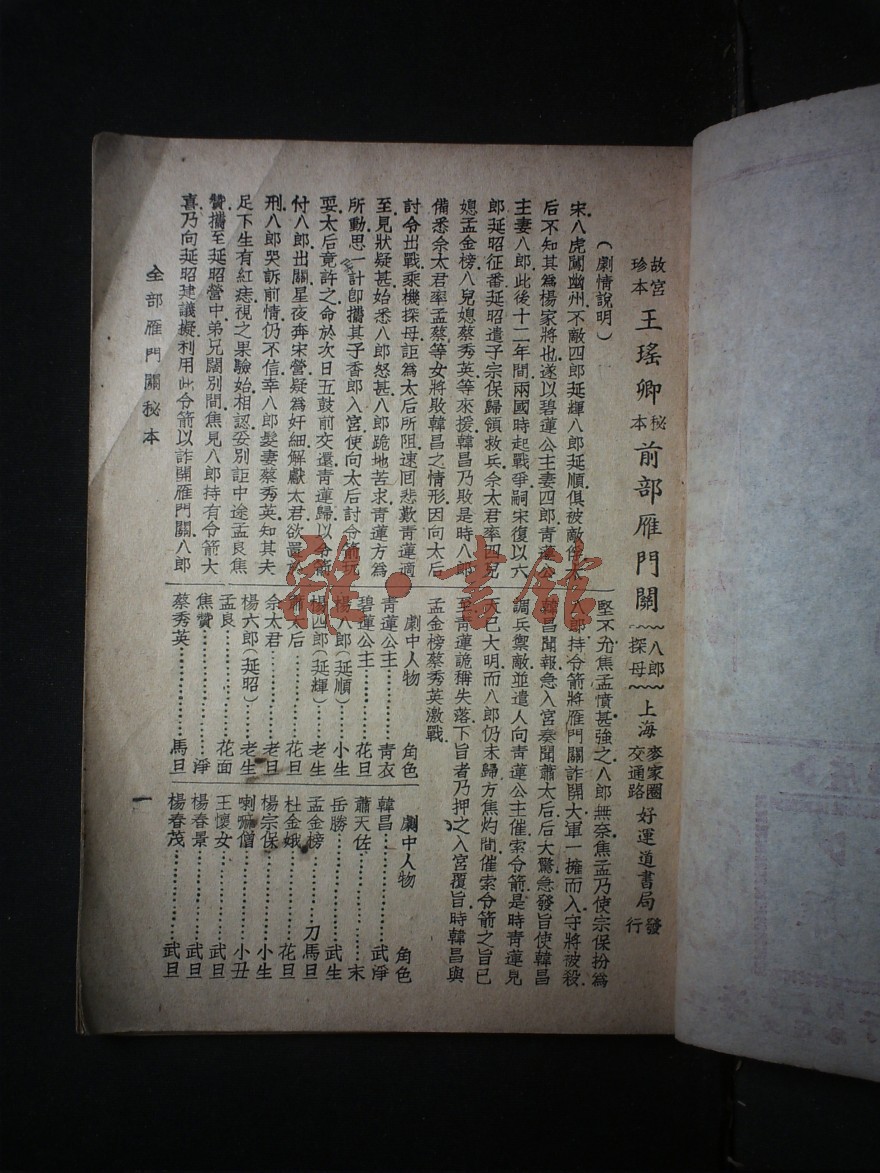 故宮珍本 王瑤卿 秘本 前部雁門關 八郎探母 上海 麥家圈交通路 好運道書局 發行
(劇情說明)
宋八虎闖幽州不敵四郎延輝八郎延順俱被敵俘太
后不知其為楊家將也遂以碧蓮公主妻四郎靑蓮公
主妻八郎此後十二年間兩國時起戰爭嗣宋復以六
郎延昭征番延昭遣子宗保歸領救兵佘太君率四兒
媳孟金榜八兒媳蔡秀英等來援韓昌乃敗是時八郎
備悉佘太君率孟蔡等女將敗韓昌之情形因向太后
討令出戰乘機探母詎為太后所阻速回悲歎靑蓮適
至見狀疑甚始悉八郎怒甚八郎跪地苦求靑蓮方為
所動思一計卽攜其子香郎入宮使向太后討令箭玩
耍太后竟許之命於次日五鼓前交還靑蓮歸以令箭
付八郎出關星夜奔宋營疑為奸細解獻太君欲置於
刑八郎哭訴前情仍不信幸八郎髮妻蔡秀英知其夫
足下生有紅痣視之果驗始相認妥別詎中途孟良焦
贊攜至延昭營中弟兄闊別間焦見八郎持有令箭大
喜乃向延昭建議擬利用此令箭以詐開雁門關八郎
堅不允焦孟憤甚強之八郎無奈焦孟乃使宗保扮為
八郎持令箭將雁門關詐開大軍一擁而入守將被殺
韓昌聞報急入宮奏聞蕭太后后大驚急發旨使韓昌
調兵禦敵並遣人向靑蓮公主催索令箭是時靑蓮見
天已大明而八郎仍未歸方焦灼間催索令箭之旨已
至靑蓮詭稱失落下旨者乃押之入宮覆旨時韓昌與
孟金榜蔡秀英激戰
劇中人物 角色
靑蓮公主……靑衣
碧蓮公主……花旦
楊八郎(延順)……小生
楊四郎(延輝)……老生
蕭太后……花旦
佘太君……老旦
楊六郎(延昭)……老生
孟良……花面
焦贊……淨
蔡秀英……馬旦
劇中人物 角色
韓昌……武淨
蕭天佐……末
岳勝……武生
孟金榜……刀馬旦
杜金娥……花旦
楊宗保……小生
喇嘛僧……小丑
王懷女……武旦
楊春景……武旦
楊春茂……武旦
全部雁門關秘本
一
雜·書館